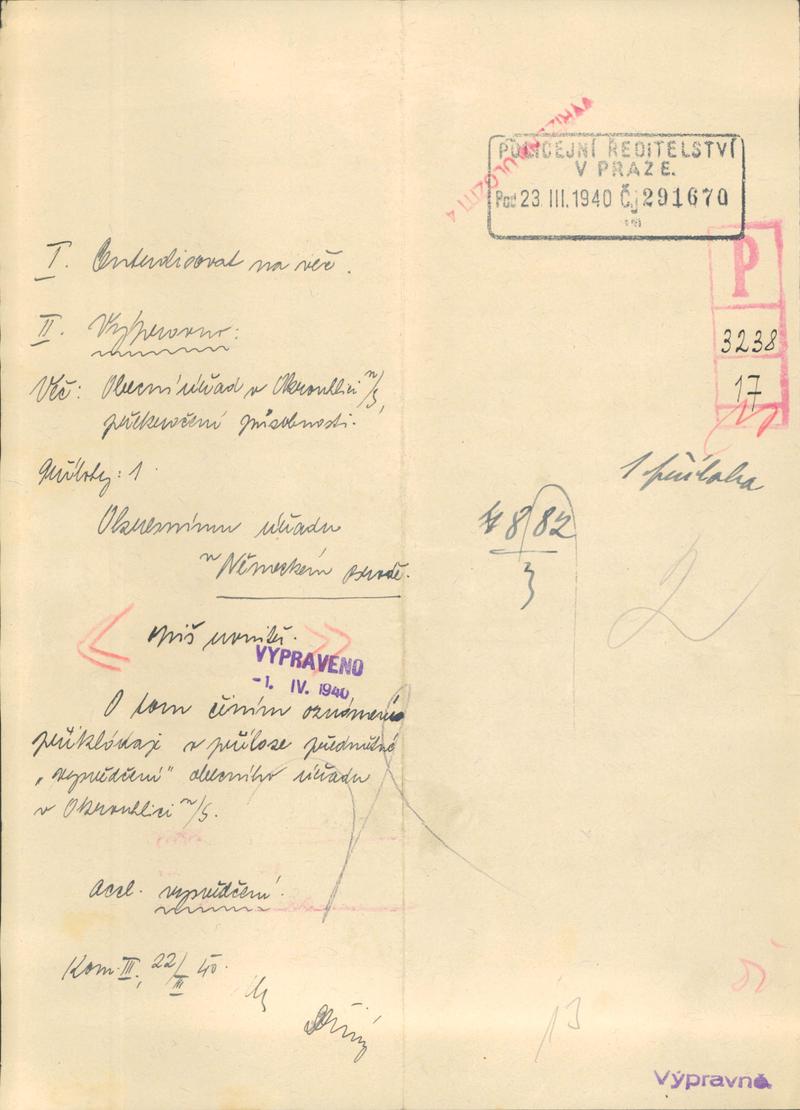 VYŘÍZ ULOŽITI 4
POLICEJNÍ ŘEDITELSTVÍ
V PRAZE.
Pod 23. III. 1940 Čj 291670
P
3238
17
I. na věc.
II. Výpravno:
Věc: Obecní úřad v Okrouhlici n/S,
překročení působnosti.
Přílohy: 1.
1 příloha
Okresnímu úřadu
v Německém Brodě.
882
3
2
Opis
VYPRAVENO
-1. IV. 1940
O tom činím oznámení
přikládaje v příloze předmětné
„vysvědčení" obecního úřadu
v Okrouhlici n/S.
Accl. vysvědčení.
Kom. III, 22/III 40.
13
Výpravna